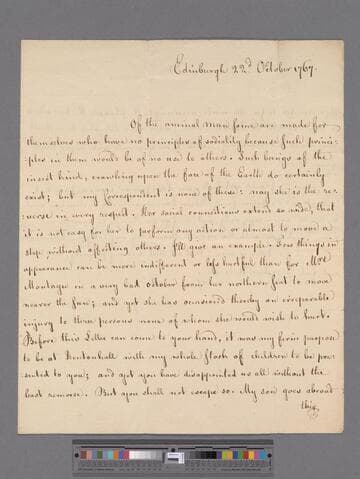 Edinburgh 22d October 1767.
Of the animal Man some are made for
themselves who have no principles of sociality because such princi-
ples in them would be of no use to others. Such beings of the
insect kind, crawling upon the face of the Earth do certainly
exist; but my Correspondent is none of these: nay she is the re-
verse in every respect. Her social connections extend so wide, that
it is not easy for her to perform any action or almost to move a
step without affecting others. I'll give an example. Few things in
appearance can be more indifferent or less hurtful than for Mrs
Montagu in a very bad October from her northern seat to move
nearer the Sun; and yet she has occasioned thereby an irreparable
injury to three persons none of whom she would wish to hurt.
Before this Letter can come to your hand, it was my firm purpose
to be at Dentonhall with my whole flock of children to be pre-
sented to you; and yet you have disappointed us all without the
least remorse. But you shall not escape so. My son goes abroad
this